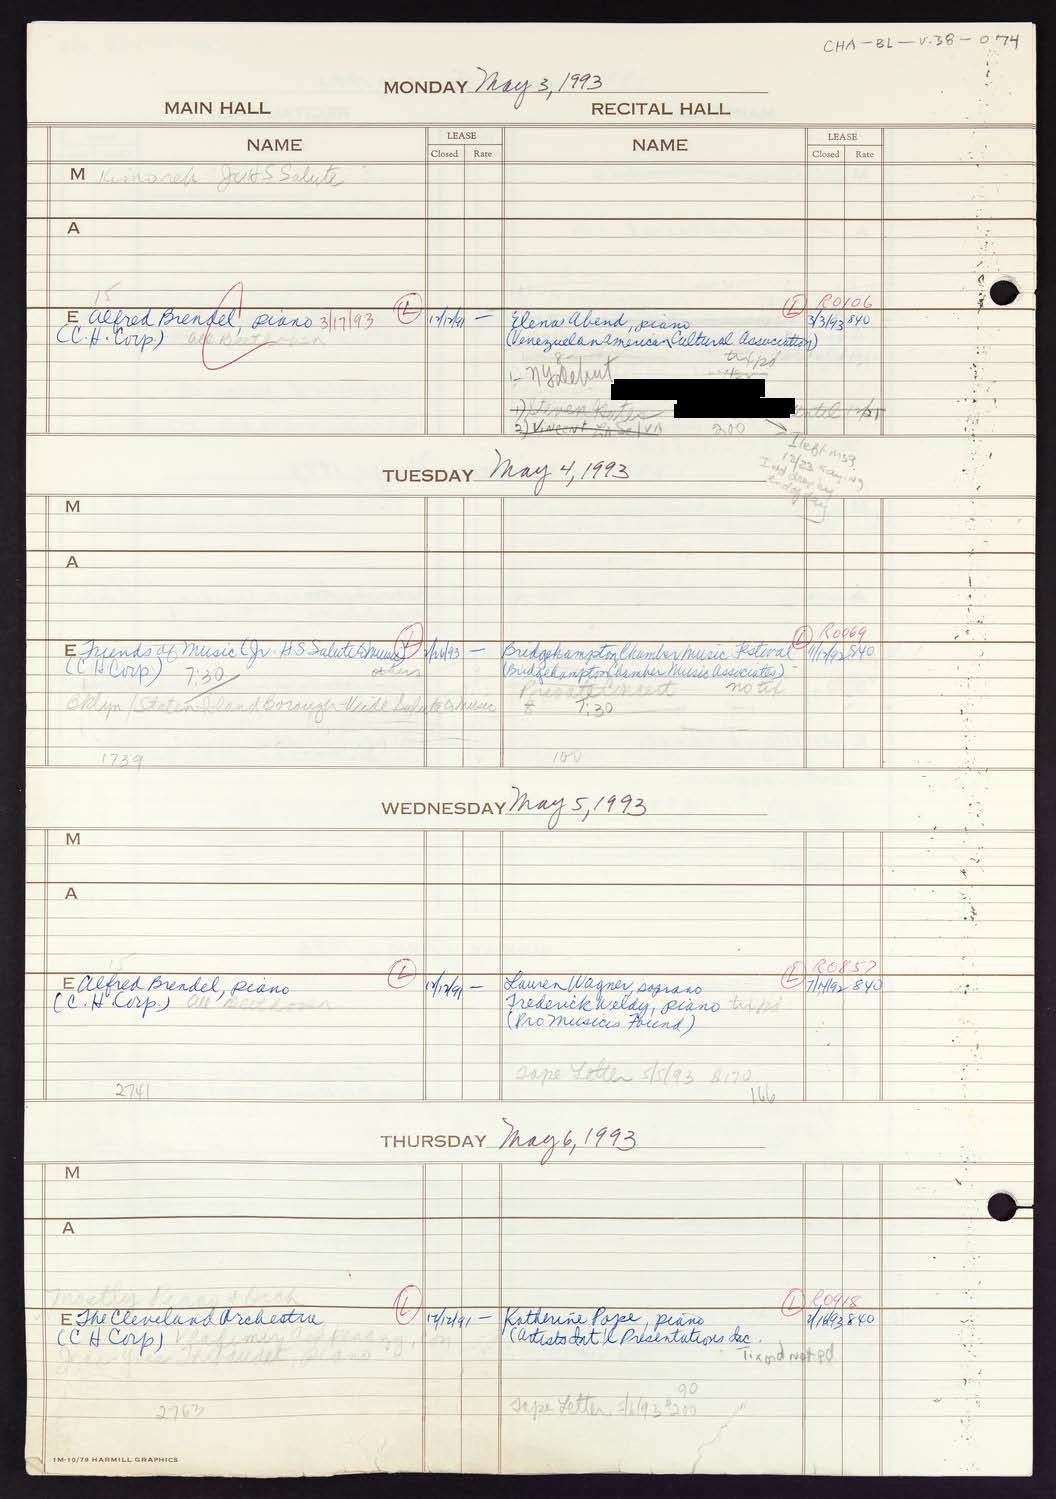 CHA-BL-V.38-074
MONDAY May 3, 1993
MAIN HALL
RECITAL HALL
NAME
LEASE
Closed
Rate
NAME
LEASE
Closed
Rate
M
Jr HS Salute
A
15
E Alfred Brendel, piano 3/17/93
L
12/12/91 —
(C.H. Corp.) All Beethoven
L R0106
Elena Abend, piano
3/3/93 840
(Venezuelan American Cultural Association)
8-
tix pd
1- NY Debut
1) Steven
until 12/25
2) Vincent La Selva
200
I left msg
12/23 saying
TUESDAY May 4, 1993
M
A
E Friends of Music (Jr. HS Salute to Music)
L
/26/93 —
(C H Corp) 7:30
Bklyn/Staten Island Borough-Wide Salute to Music
1739
L R0069
Bridgehampton Chamber Music Festival
9/17/92 840
(Bridgehampton Chamber Music Associates)
Private Concert no tix
8 7:30
100
WEDNESDAY May 5, 1993
M
A
15
E Alfred Brendel, piano
L
12/12/91 —
(C. H. Corp.) All Beethoven
2741
L R0857
Lauren Wagner, soprano
7/14/92 840
Frederick Weldy, piano tix pd
(Pro Musicis Found)
Tape Letter 5/5/93 $170
166
THURSDAY May 6, 1993
M
A
E The Cleveland Orchestra
L
12/12/91 —
(C H Corp) Vladimir Ashkenazy
Jean-Yves Thibaudet, piano
2763
L R0918
Katherine Pope, piano
/16/93 840
(Artists Int'l Presentations Inc.
Tix ord not pd
90
Tape Letter 5/6/93 $200
1M-10/79 HARMILL GRAPHICS